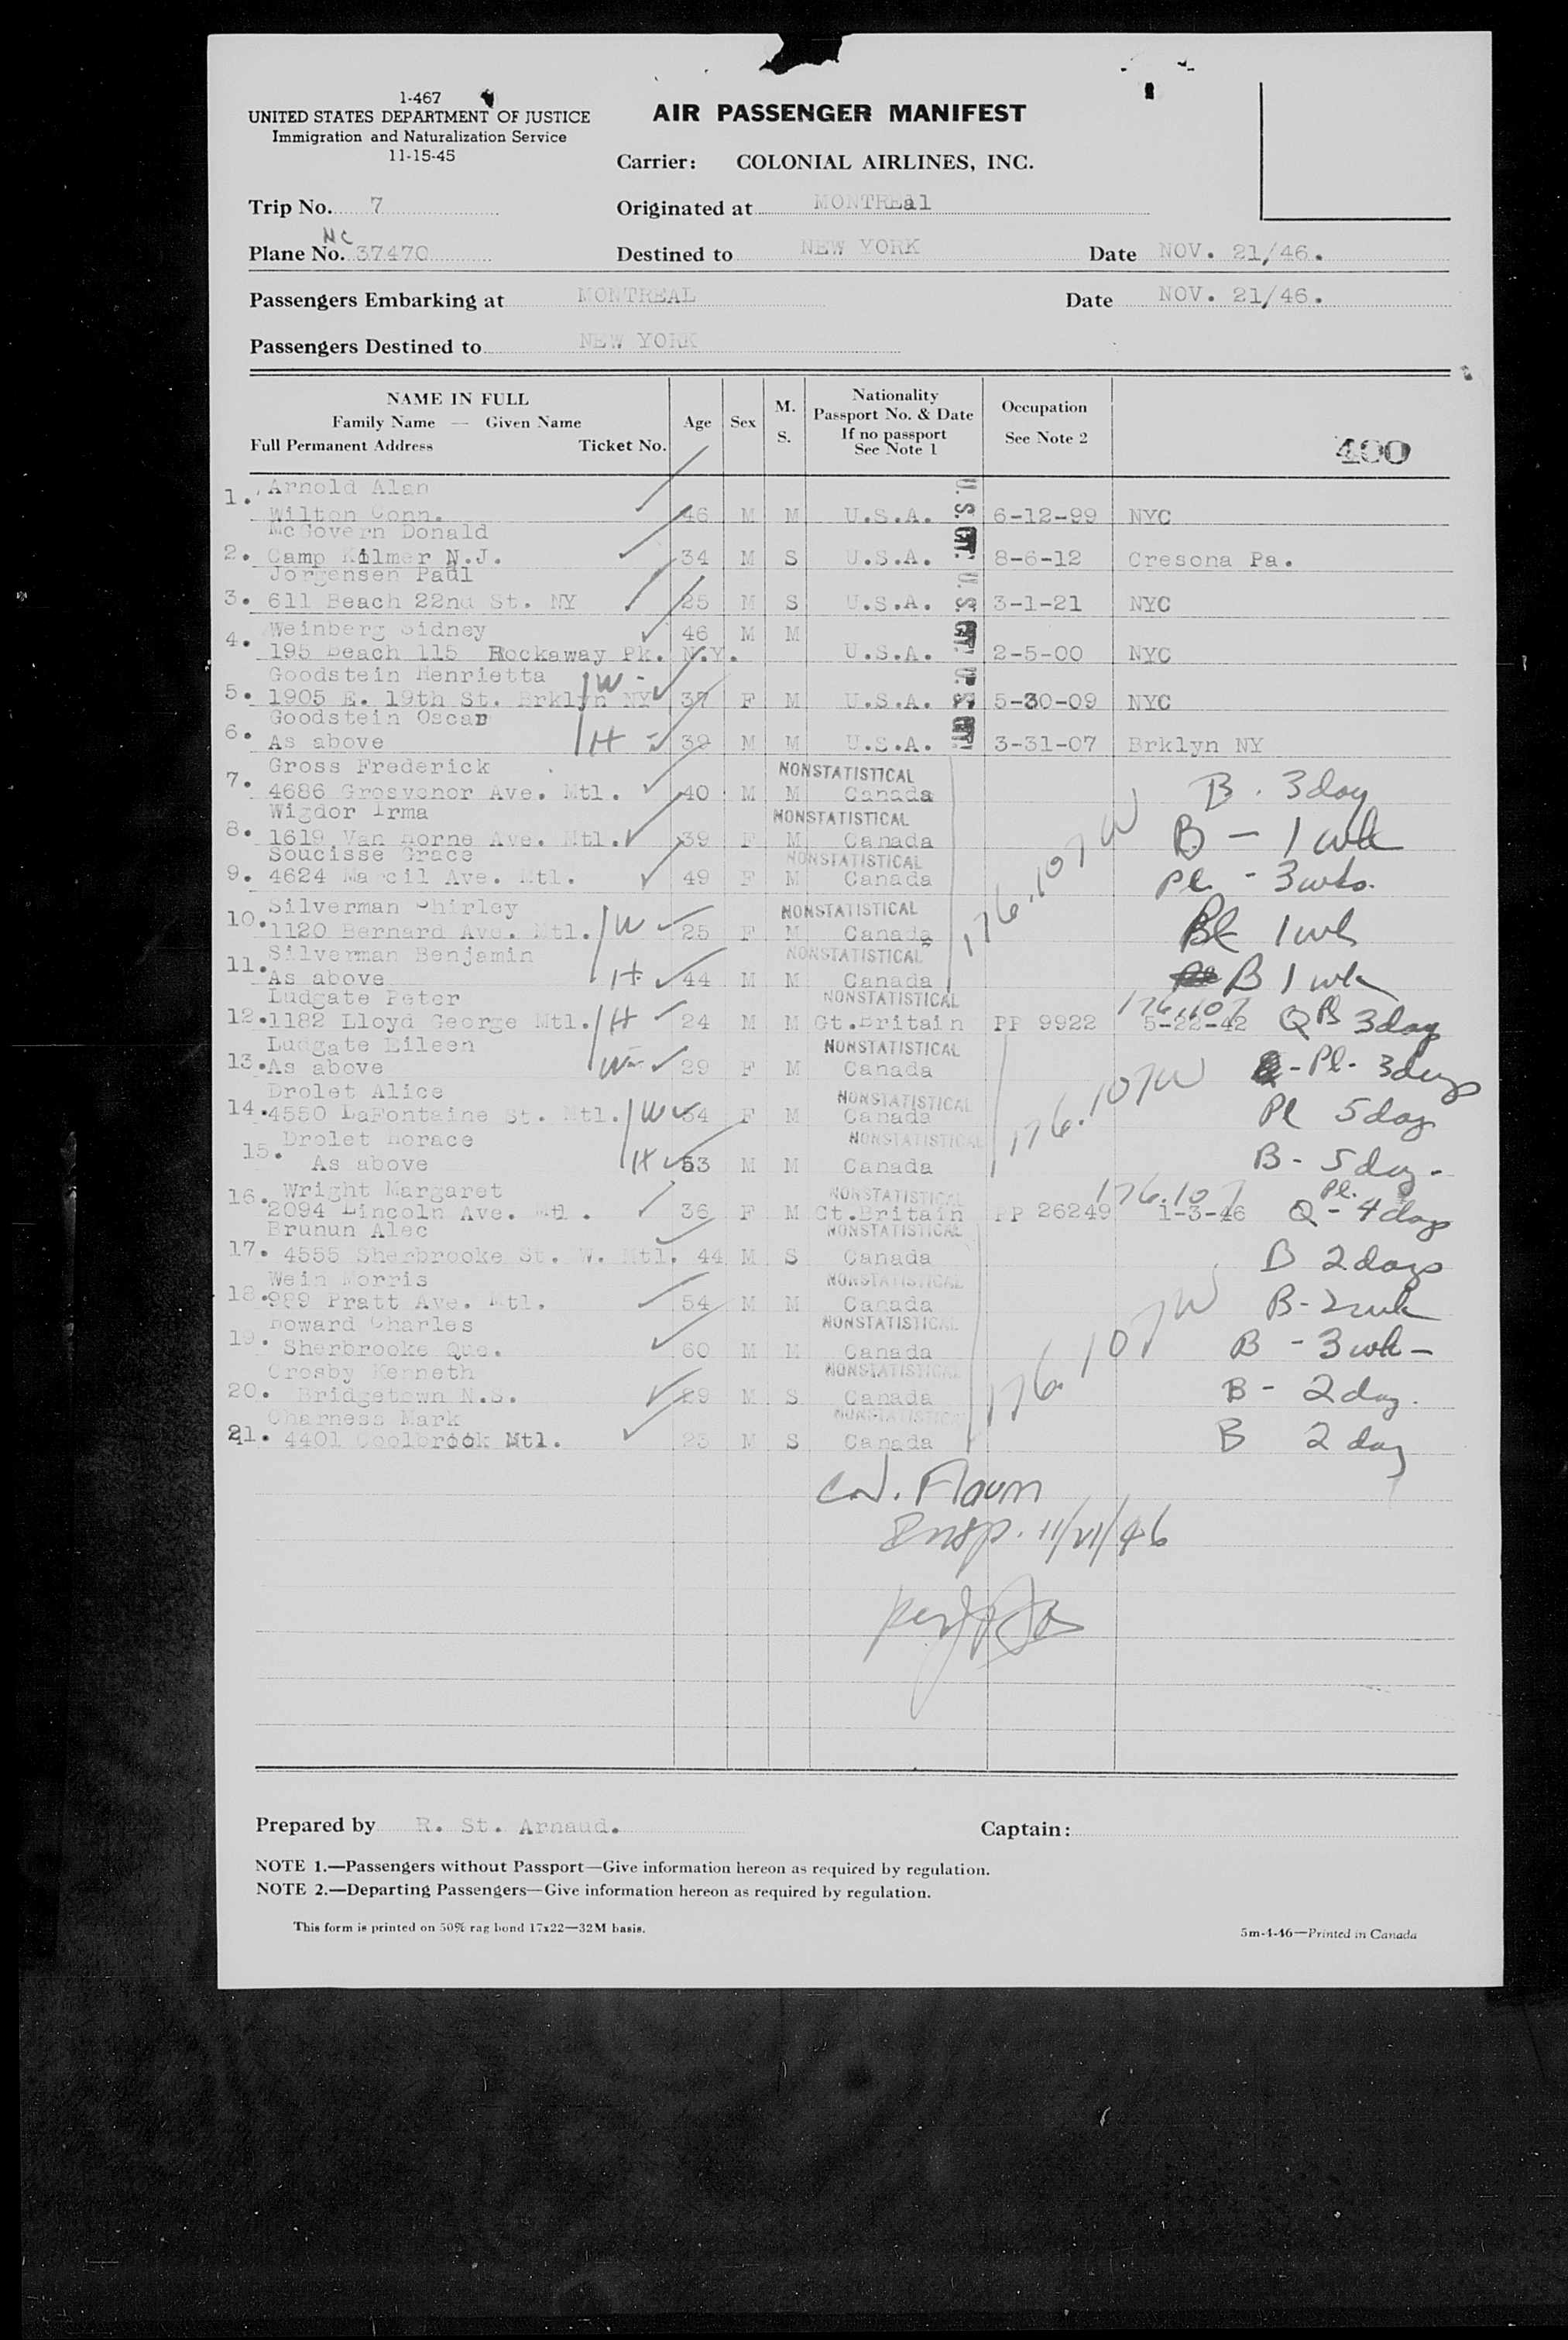 1-467
UNITED STATES DEPARTMENT OF JUSTICE
Immigration and Naturalization Service
11-15-45
AIR PASSENGER MANIFEST
Carrier: COLONIAL AIRLINES, INC.
Trip No. 7
Originated at MONTREal
NC
Plane No. 37470
Destined to NEW YORK
Date NOV. 21/46.
Passengers Embarking at MONTREAL
Date NOV. 21/46.
Passengers Destined to NEW YORK
NAME IN FULL
Family Name — Given Name
Full Permanent Address Ticket No.
Age
Sex
M.
S.
Nationality
Passport No. & Date
If no passport
See Note 1
Occupation
See Note 2
400
1. Arnold Alan
Wilton Conn. 46 M M U.S.A. 6-12-99 NYC
McGovern Donald
2. Camp Kilmer N.J. 34 M S U.S.A. 8-6-12 Cresona Pa.
Jorgensen Paul
3. 611 Beach 22nd St. NY 25 M S U.S.A. 3-1-21 NYC
4. Weinberg Sidney 46 M M
195 Beach 115 Rockaway Pk. N.Y. U.S.A. 2-5-00 NYC
U.S. CIT. U.S. CIT. U.S. CIT.
Goodstein Henrietta
5. 1905 E. 19th St. Brklyn NY W - 37 F M U.S.A. 5-30-09 NYC
Goodstein Oscar
6. As above H - 39 M M U.S.A. 3-31-07 Brklyn NY
Gross Frederick NONSTATISTICAL
7. 4686 Grosvenor Ave. Mtl. 40 M M Canada B. 3 day
Wigdor Irma NONSTATISTICAL
8. 1619 Van Horne Ave. Mtl. 39 F M Canada B - 1 wk
Soucisse Grace NONSTATISTICAL
9. 4624 Marcil Ave. Mtl. 49 F M Canada Pl. - 3 wks.
176.107W
Silverman Shirley NONSTATISTICAL
10. 1120 Bernard Ave. Mtl. W 25 F M Canada 1 wk
Silverman Benjamin NONSTATISTICAL
11. As above H 44 M M Canada B 1 wk
Ludgate Peter NONSTATISTICAL 176.107
12. 1182 Lloyd George Mtl. H 24 M M Gt.Britain PP 9922 5-22-42 Q B 3 day
Ludgate Eileen NONSTATISTICAL
13. As above W 29 F M Canada - Pl - 3 days
176.107W
Drolet Alice NONSTATISTICAL
14. 4550 LaFontaine St. Mtl. W 54 F M Canada Pl 5 day
Drolet Horace NONSTATISTICAL
15. As above H 53 M M Canada B - 5 day -
16. Wright Margaret NONSTATISTICAL 176.107 Pl.
2094 Lincoln Ave. Mtl. 36 F M Gt.Britain PP 26249 1-3-46 Q - 4 days
Brunun Alec NONSTATISTICAL
17. 4555 Sherbrooke St. W. Mtl. 44 M S Canada B 2 days
Wein Morris NONSTATISTICAL
18. 989 Pratt Ave. Mtl. 54 M M Canada B - 2 wk
Howard Charles NONSTATISTICAL
19. Sherbrooke Que. 60 M M Canada B - 3 wk -
176.107W
Crosby Kenneth NONSTATISTICAL
20. Bridgetown N.S. 29 M S Canada B - 2 day.
Charness Mark NONSTATISTICAL
21. 4401 Coolbrook Mtl. 23 M S Canada B 2 day
Insp. 11/21/46
Prepared by R. St. Arnaud.
Captain:
NOTE 1.—Passengers without Passport—Give information hereon as required by regulation.
NOTE 2.—Departing Passengers—Give information hereon as required by regulation.
This form is printed on 50% rag bond 17x22—32M basis.
5m-4-46—Printed in Canada